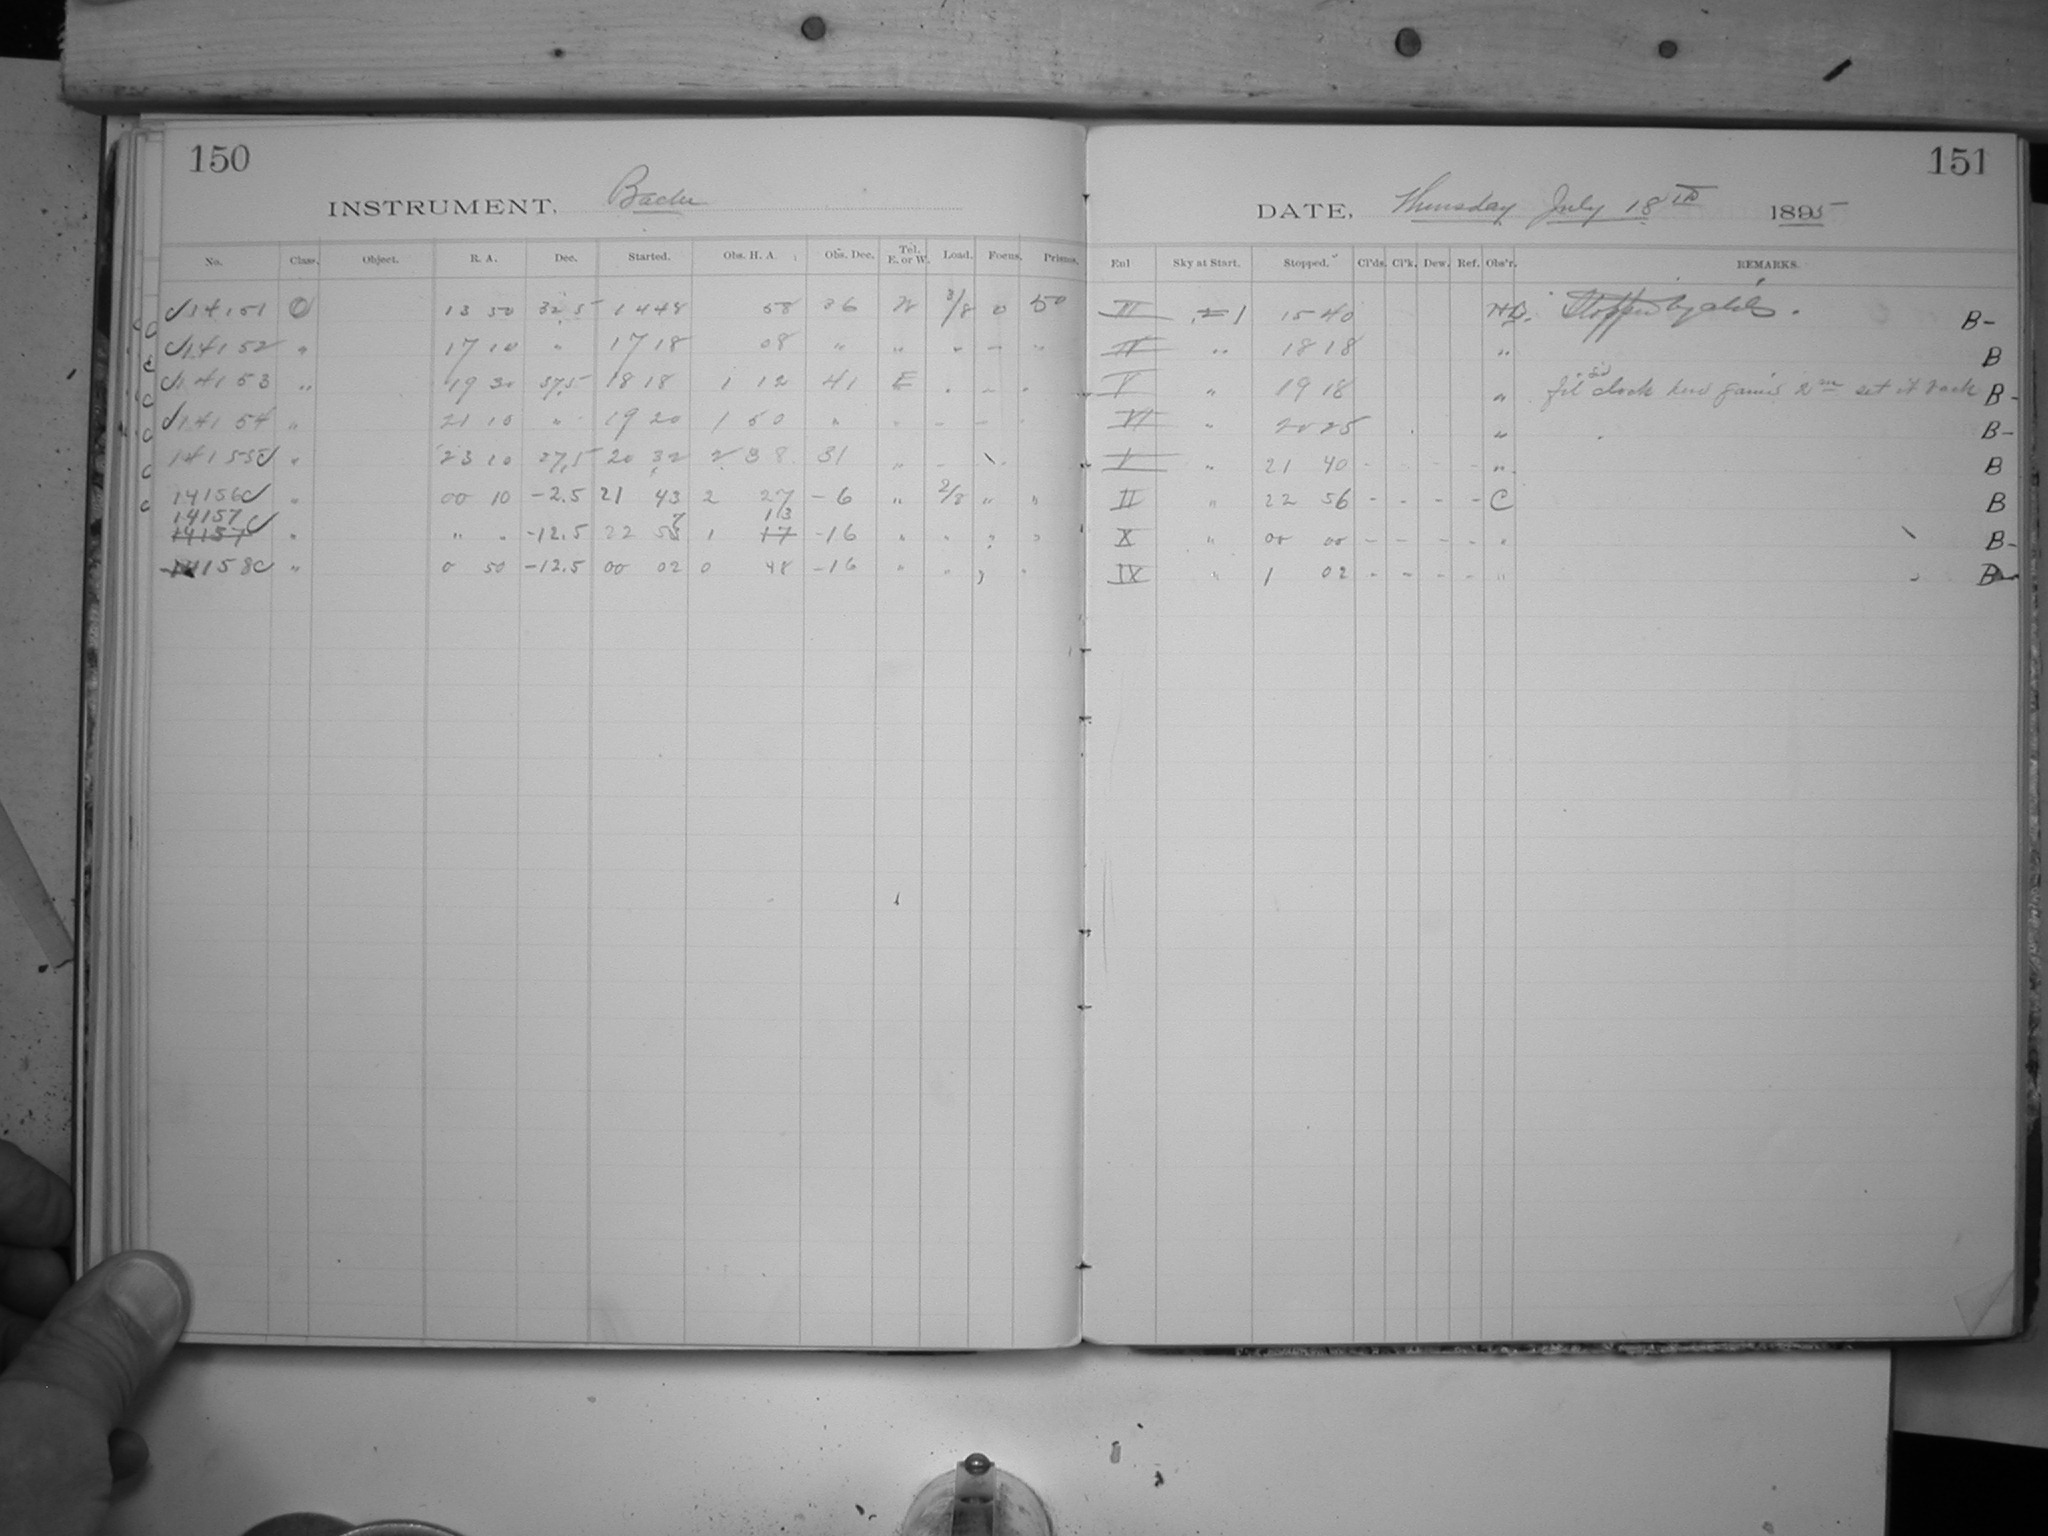 150
INSTRUMENT. Bache
No. Class. Object. R. A. Dec. Started. Obs. H. A. Obs. Dec. Tel. E. or W. Load. Focus. Prisms.
14151 O 13 50 32.5 14 48 58 36 W 3/8 0 50
14152 " 17 10 " 17 18 08 " " " – "
14153 " 19 30 37.5 18 18 1 12 41 E " – "
14154 " 21 10 " 19 20 1 50 " " – – "
14155 " 23 10 27.5 20 32 2 38 31 " –
14156 " 00 10 -2.5 21 43 2 27 -6 " 2/8 " "
14157 13
14157 " " " -12.5 22 58 1 17 -16 " " " "
14158 " 0 50 -12.5 00 02 0 48 -16 " " , "
151
DATE, Thursday July 18th 1895
Enl Sky at Start. Stopped. Cl'ds. Cl'k. Dew. Ref. Obs'r. REMARKS.
III 1 15 40 B-
" 18 18 " B
V " 19 18 " sid clock 2m set it back B-
VI " 20 25 " B-
V " 21 40 - - - " B
II " 22 56 - - - - C B
X " 00 00 - - - - " B-
IX " 1 02 - - - - " B-